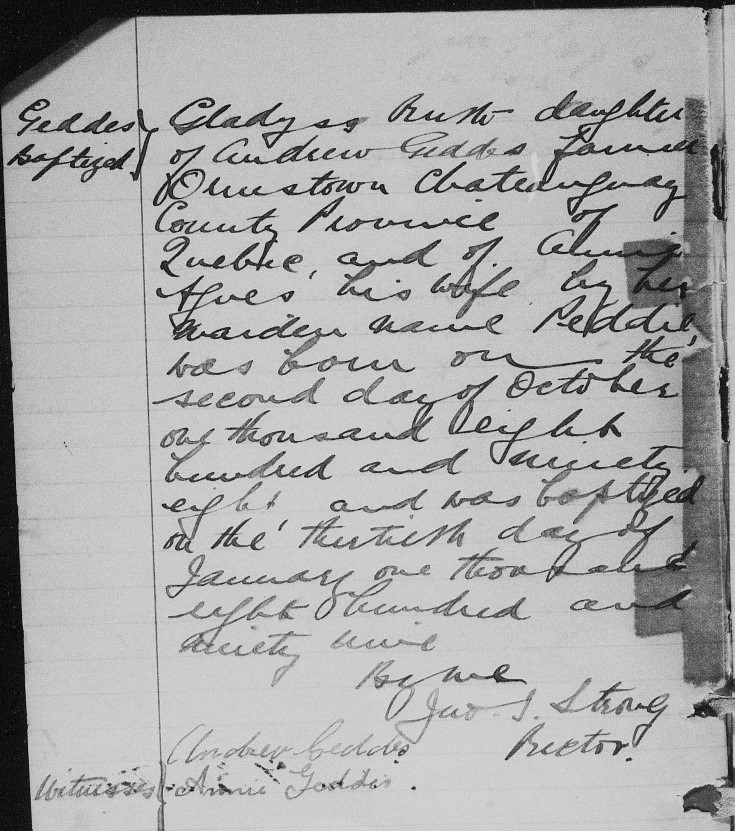 Geddes
Baptized
Gladyss Ruth daughter
of Andrew Geddes farmer
Ormstown Chateauguay
County Province of
Quebec, and of Annie
Agnes his wife by her
maiden name Peddie
was born on the
second day of October
one thousand eight
hundred and ninety
eight and was baptized
on the thirtieth day of
January one thousand
eight hundred and
ninety nine
By me
Jno. I. Strong
Rector.
Andrew Geddes
Witnesses Annie Geddes.